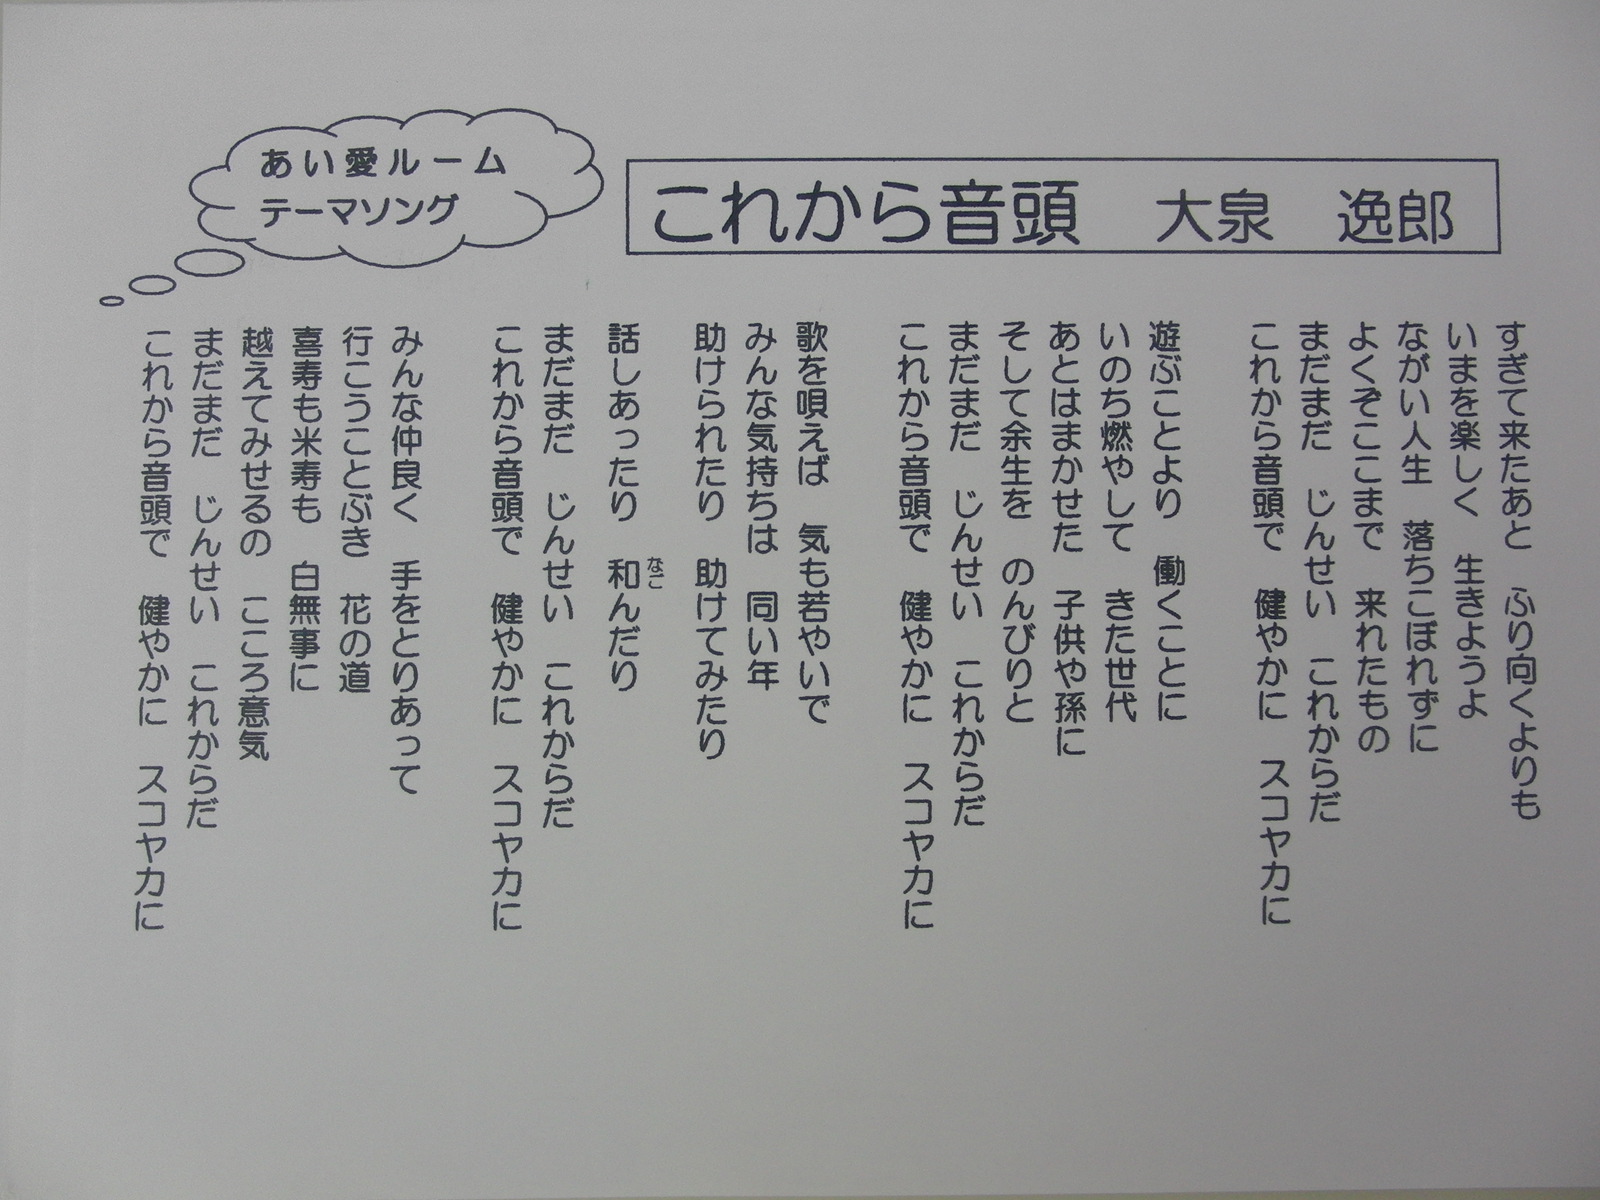 あい愛ルーム
テーマソング
これから音頭　大泉　逸郎
すぎて来たあと　ふり向くよりも
いまを楽しく　生きようよ
ながい人生　落ちこぼれずに
よくぞここまで　来れたもの
まだまだ　じんせい　これからだ
これから音頭で　健やかに　スコヤカに
遊ぶことより　働くことに
いのち燃やして　きた世代
あとはまかせた　子供や孫に
そして余生を　のんびりと
まだまだ　じんせい　これからだ
これから音頭で　健やかに　スコヤカに
歌を唄えば　気も若やいで
みんな気持ちは　同い年
助けられたり　助けてみたり
なご
話しあったり　和んだり
まだまだ　じんせい　これからだ
これから音頭で　健やかに　スコヤカに
みんな仲良く　手をとりあって
行こうことぶき　花の道
喜寿も米寿も　白無事に
越えてみせるの　こころ意気
まだまだ　じんせい　これからだ
これから音頭で　健やかに　スコヤカに